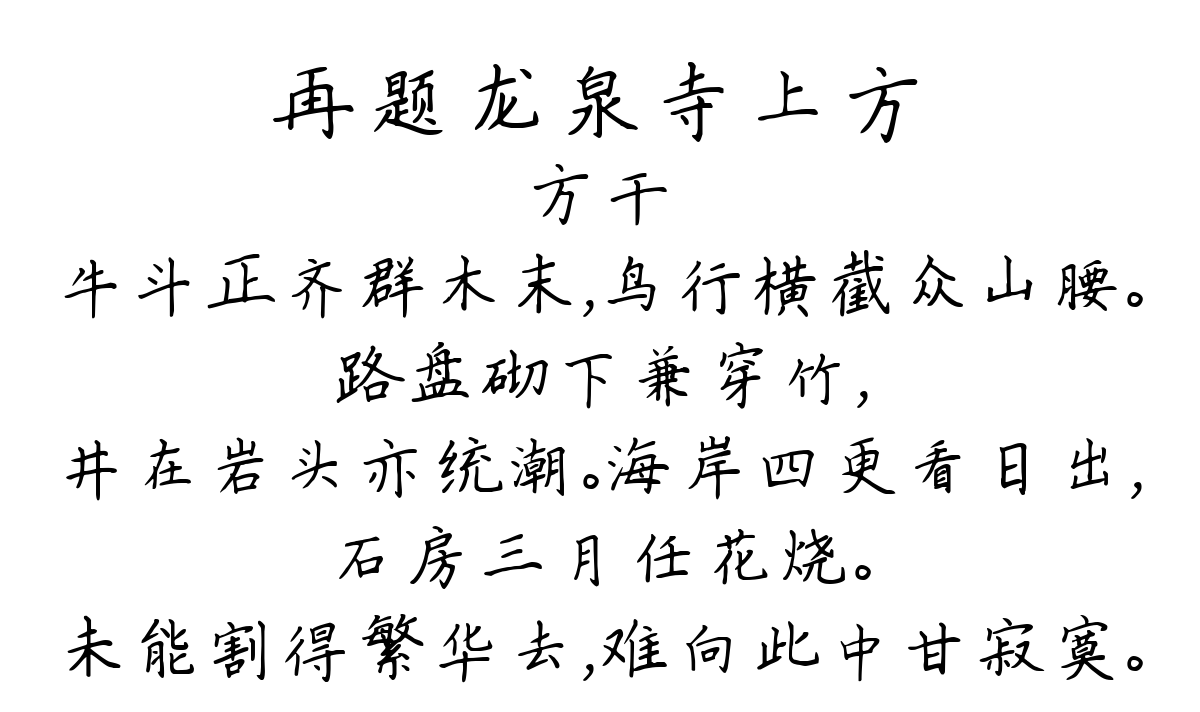 再题龙泉寺上方
方干
牛斗正齐群木末,鸟行横截众山腰。
路盘砌下兼穿竹,
井在岩头亦统潮。海岸四更看日出,
石房三月任花烧。
未能割得繁华去,难向此中甘寂寞。